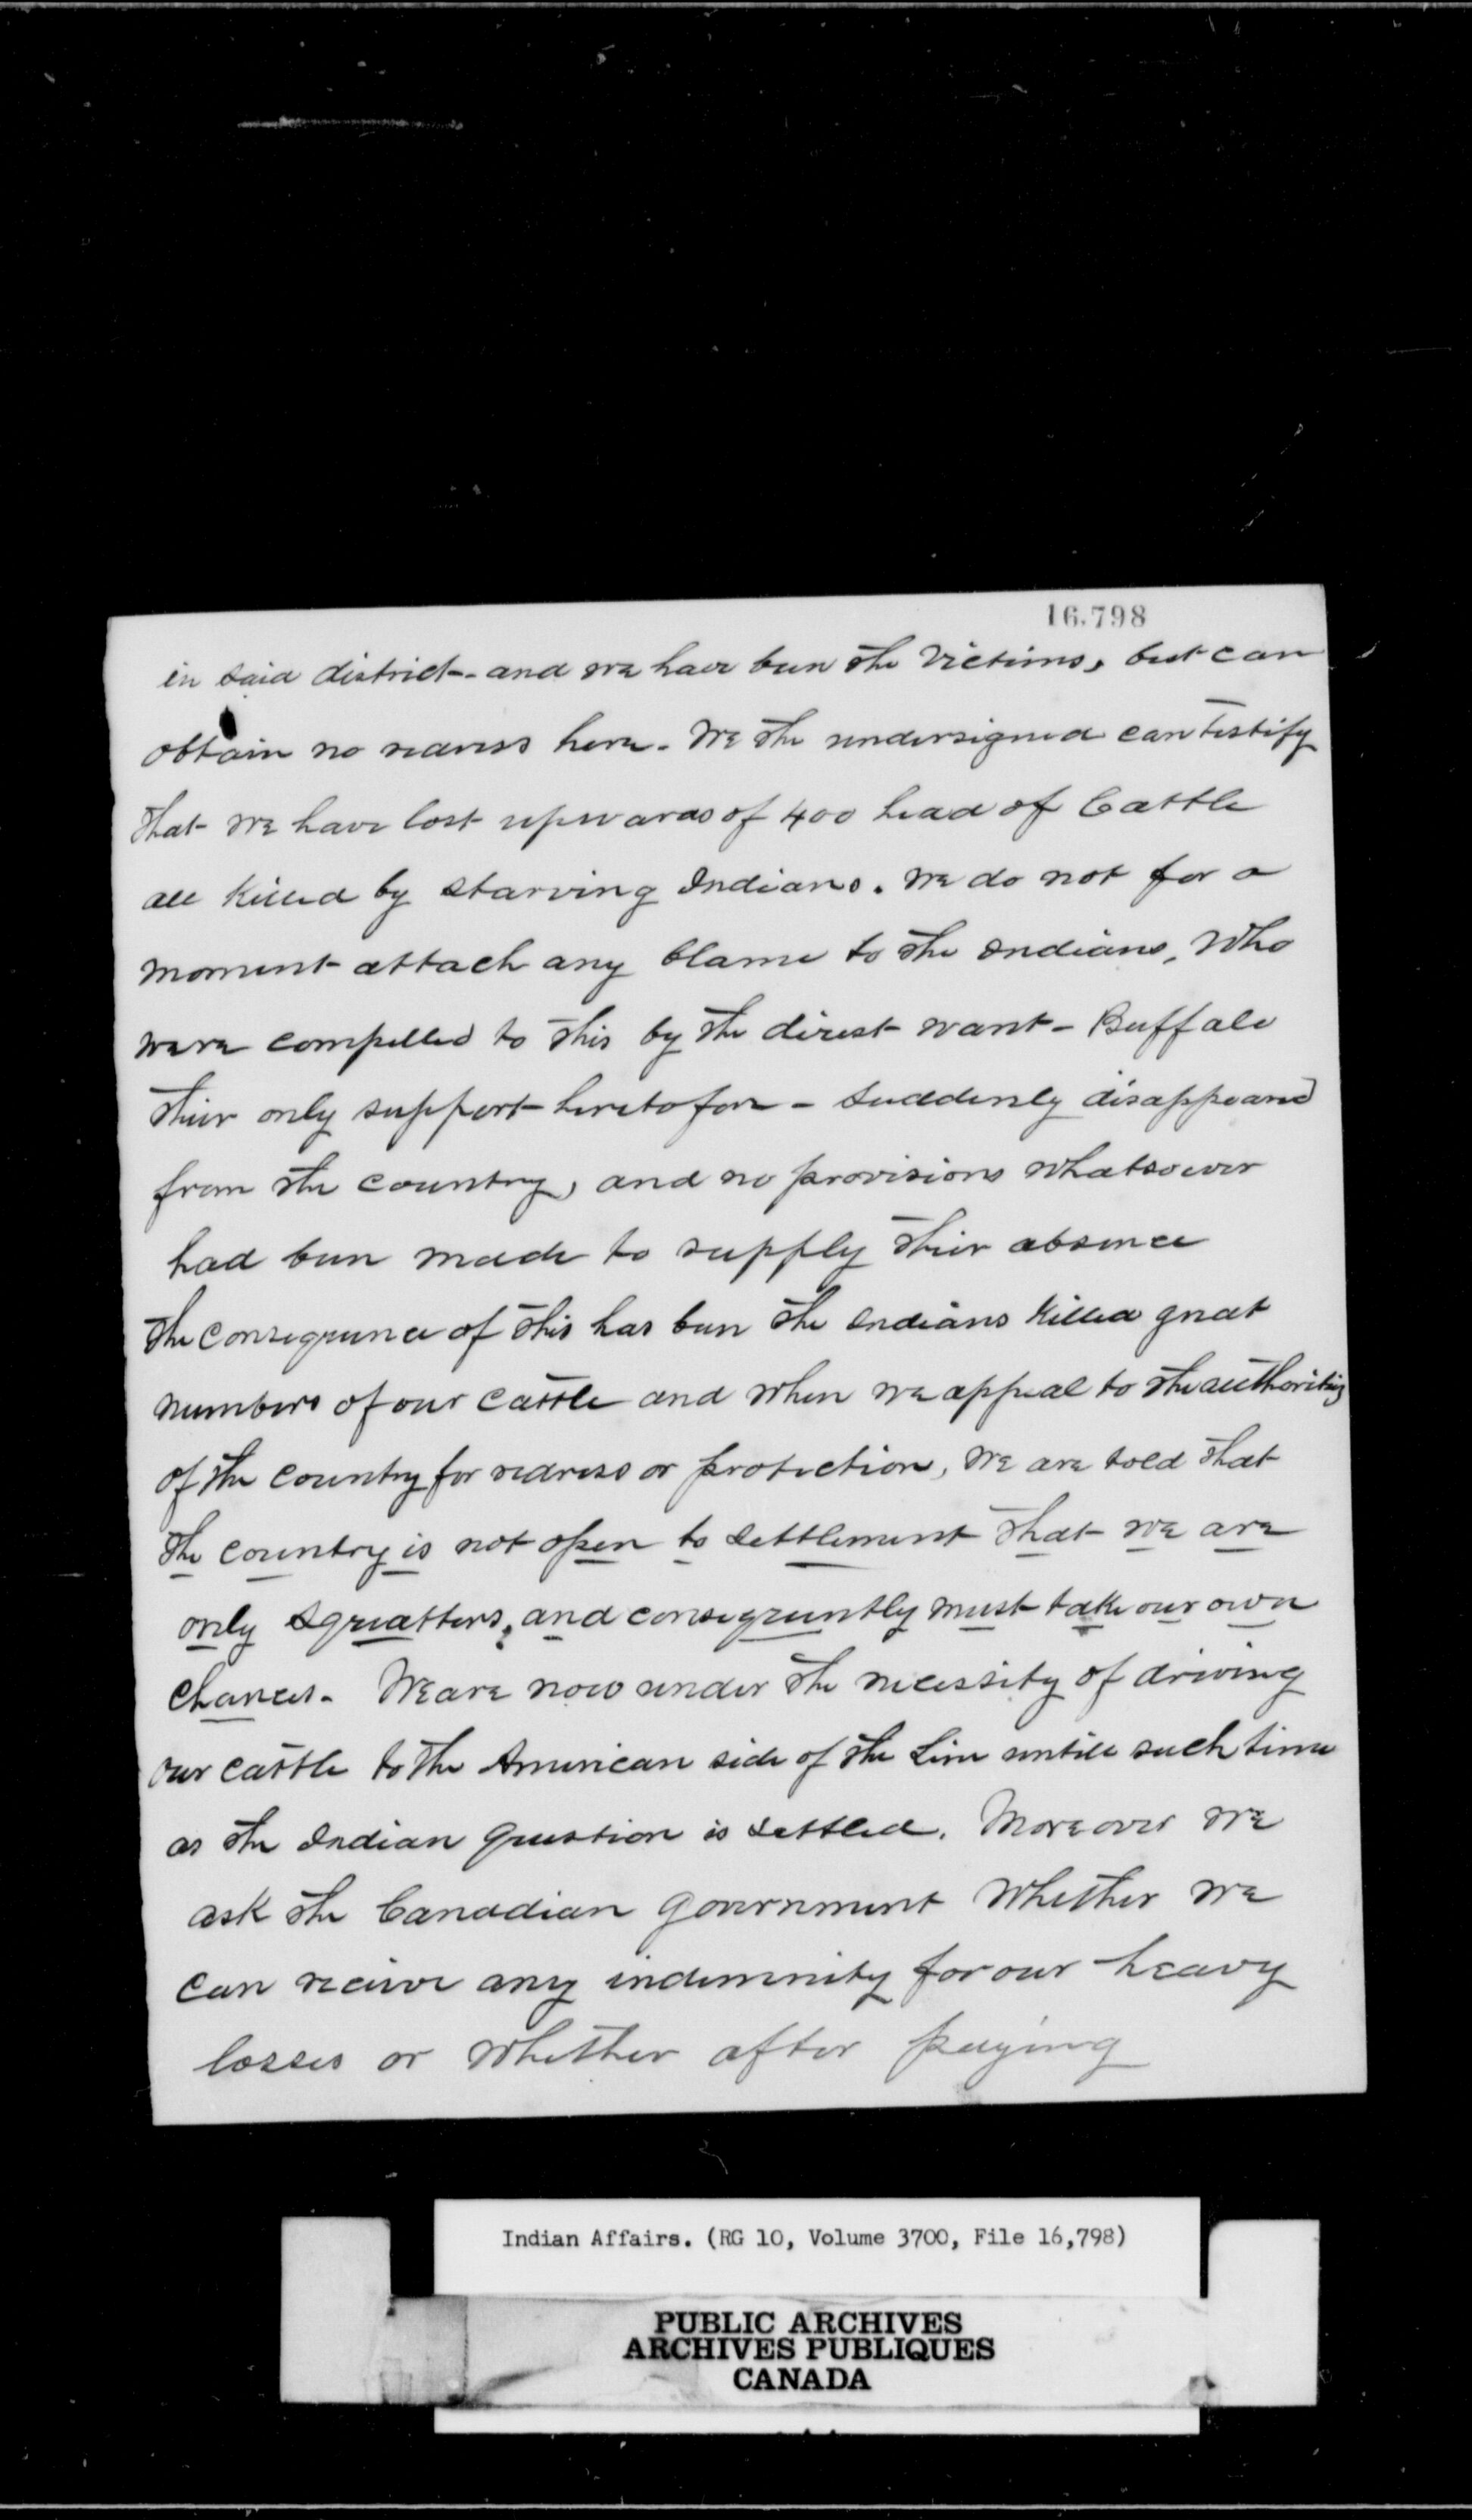 16.798
in said district - and we have been the Victims, but can
obtain no redress here - We the undersigned can testify
that we have lost upwards of 400 head of Cattle
all killed by starving Indians. We do not for a
moment attach any blame to the Indians, Who
were compelled to this by the direst want - Buffalo
their only support heretofore - suddenly disappeared
from the country, and no provisions whatsoever
had been made to supply their absence
The consequence of this has been the Indians killed great
numbers of our cattle and when we appeal to the authorities
of the country for redress or protection, we are told that
the country is not open to settlement that we are
only squatters, and consequently must take our own
chances. We are now under the necessity of driving
our cattle to the American side of the Line untill such time
as the Indian question is settled. Moreover we
ask the Canadian Government whether we
can receive any indemnity for our heavy
losses or whether after paying
Indian Affairs. (RG 10, Volume 3700, File 16,798)
PUBLIC ARCHIVES
ARCHIVES PUBLIQUES
CANADA